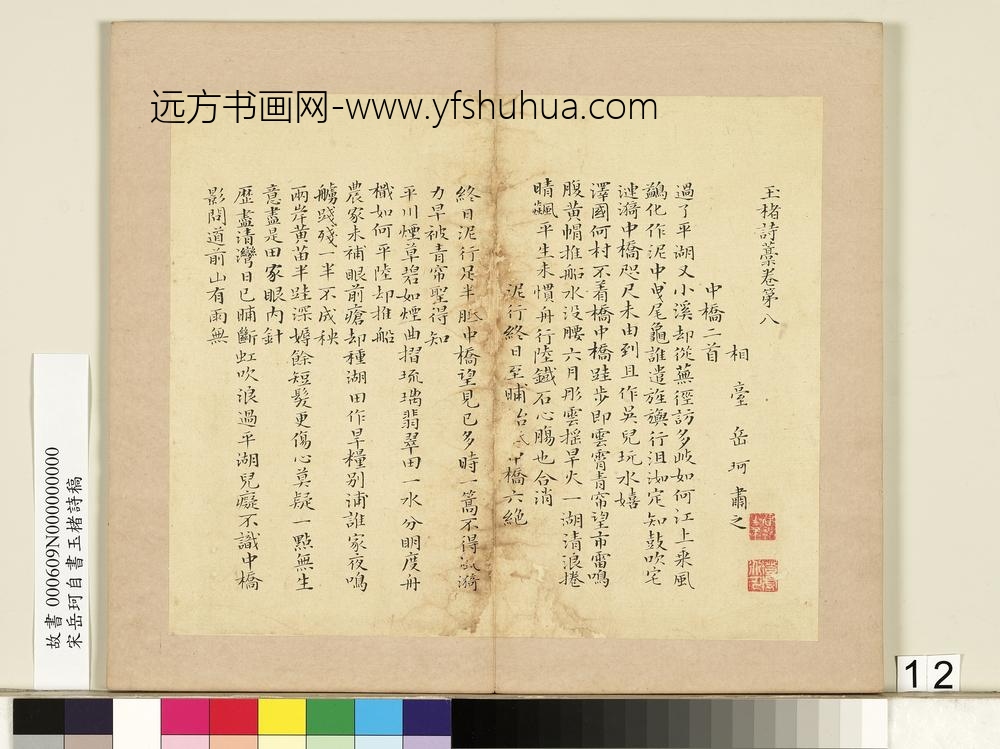 远方书画网-www.yfshuhua.com
玉楮詩藁卷第八
相臺岳珂肅之
中橋二首
過了平湖又小溪却從蕪徑訪多岐如何江上乘風
鷁化作泥中曳尾龜誰遣旌旟行沮洳定知鼓吹宅
漣漪中橋咫尺未由到且作吳兒玩水嬉
澤國何村不着橋中橋跬步即雲霄青帘望市雷鳴
腹黃帽推船水沒腰六月彤雲搖旱火一湖清浪捲
晴飆平生未慣舟行陸鐵石心腸也合消
泥行終日至晡始 中橋六絶
終日泥行足半胝中橋望見已多時一篙不得 漪
力早被青帘聖得知
平川煙草碧如煙曲摺琉璃翡翠田一水分明度舟
檝如何平陸却推船
農家未補眼前瘡却種湖田作旱糧別浦誰家夜鳴
艣踐殘一半不成秧
兩岸黃苗半跬深婦餘短髮更傷心莫疑一點無生
意盡是田家眼內針
歷盡清灣日已晡斷虹吹浪過平湖兒癡不識中橋
影問道前山有雨無
故書000609N000000000
宋岳珂自書玉楮詩稿
12